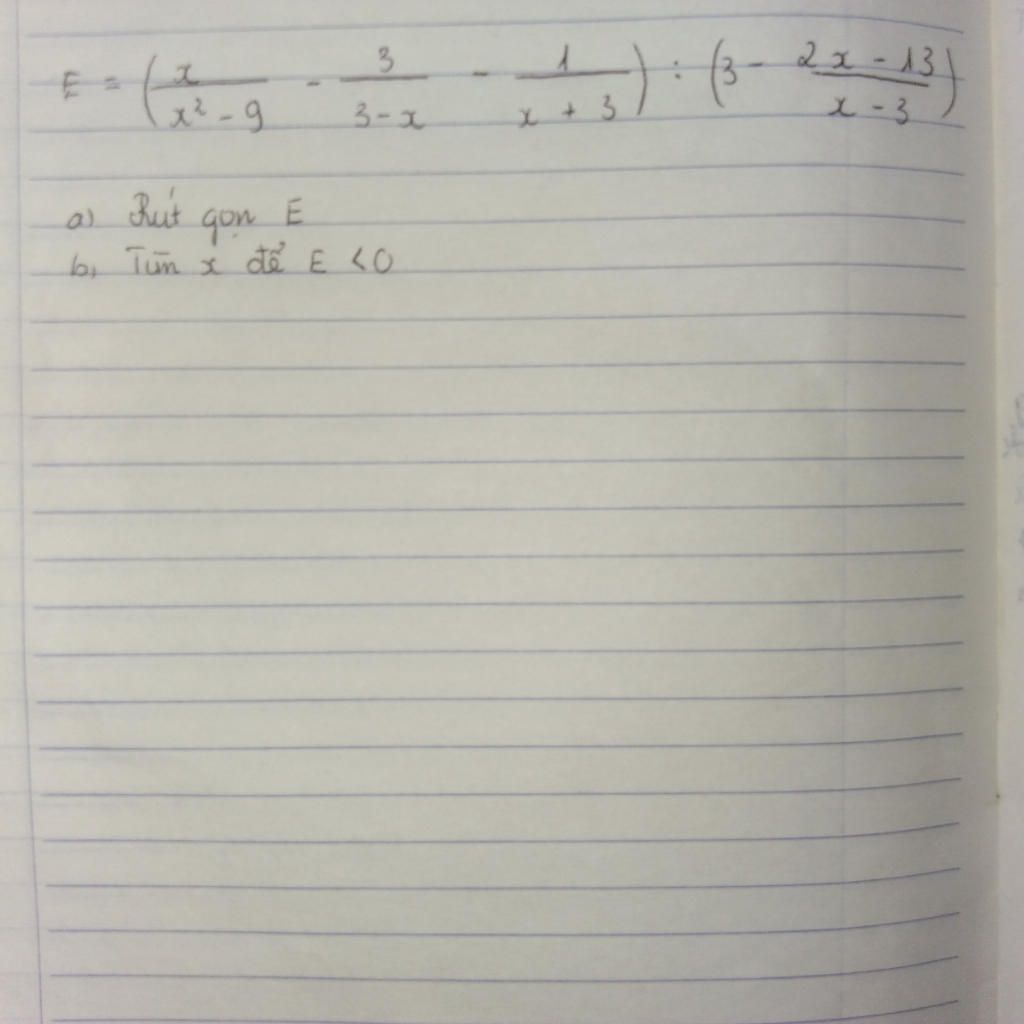 E = (x/(x² - 9) - 3/(3 - x) - 1/(x + 3)) : (3 - (2x - 13)/(x - 3))
a) Rút gọn E
b, Tìm x để E < 0